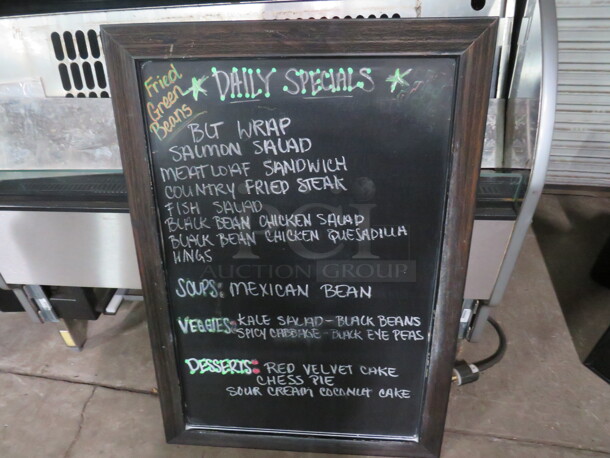 Fried
Green
Beans
DAILY SPECIALS
BLT WRAP
SALMON SALAD
MEATLOAF SANDWICH
COUNTRY FRIED STEAK
FISH SALAD
BLACK BEAN CHICKEN SALAD
BLACK BEAN CHICKEN QUESADILLA
WINGS
PCI
AUCTION GROUP
SOUPS: MEXICAN BEAN
VEGGIES: KALE SALAD - BLACK BEANS
SPICY CABBAGE - BLACK EYE PEAS
DESSERTS: RED VELVET CAKE
CHESS PIE
SOUR CREAM COCONUT CAKE